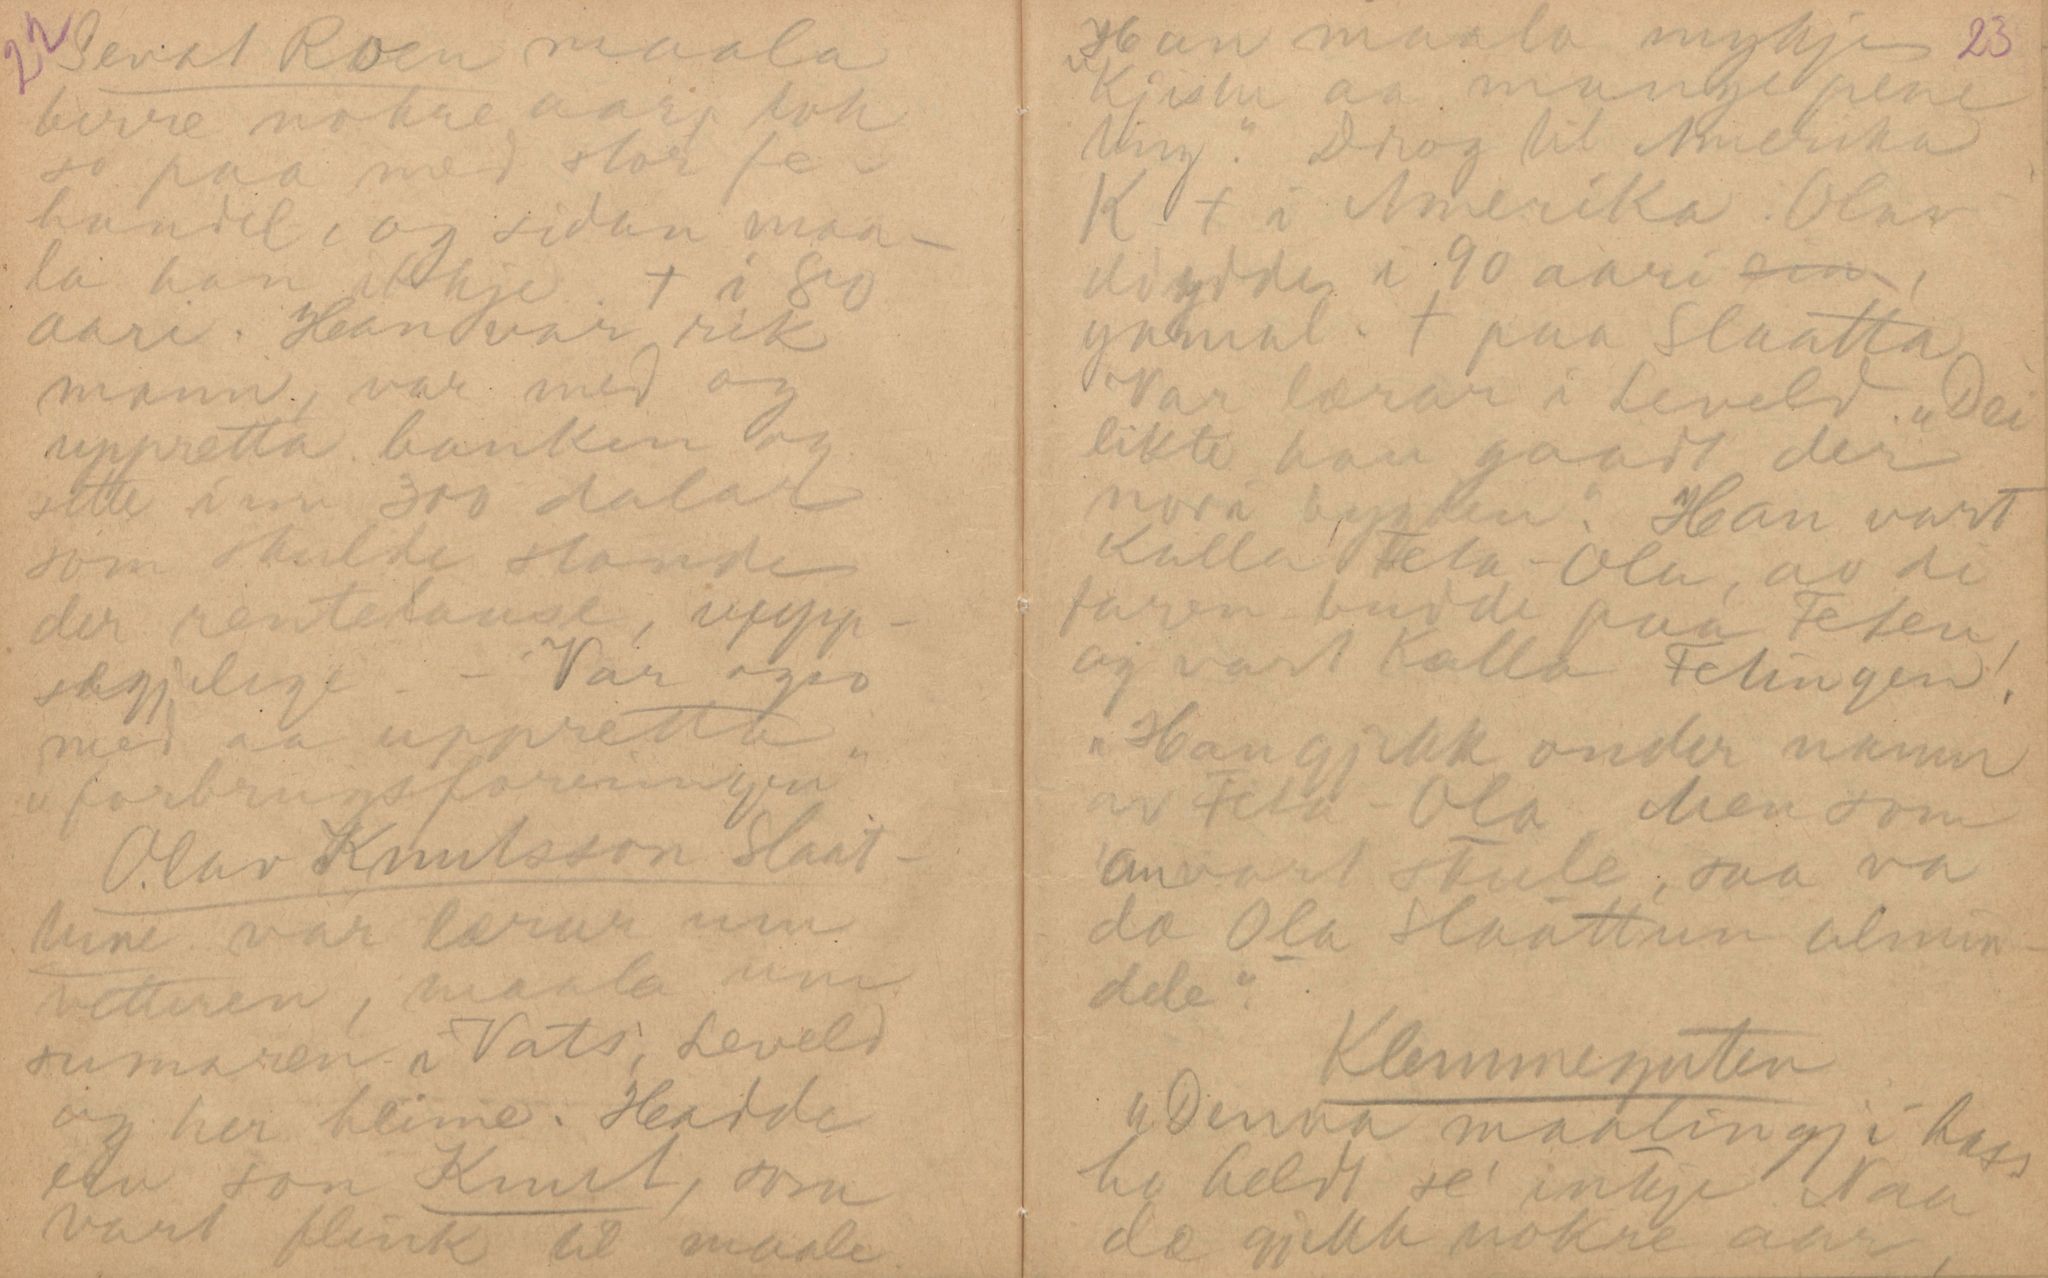 22
Sevat Roen maala
berre nokre aar, tok
so paa med stor fe-
handel, og sidan maa-
la han ikkje. † i 80
aari. Han var rik
mann, var med og
uppretta banken og
sette inn 300 dalar
som skulde standa
der rentelause, uupp-
segjelege. - Var ogso
med aa uppretta
"forbrugsforeningen"
Olav Knutsson Slaat-
tune var lærar um
vetteren, maala um
sumaren i Vats, Leveld
og her heime. Hadde
ein son Knut, som
vart flink til maale
23
"Han maala mykje
Kjistu aa mange pene
ting". Drog til Amerika
K † i Amerika. Olav
døydde i 90 aari ein,
gamal. † paa Slaatta
Var lærar i Leveld. "Dei
likte han gaadt der
nori bygden". Han vart
Kalla Feta-Ola, av di
faren budde paa Feten,
og vart Kalla Fetingen.
"Han gjekk onder namn
av Feta-Ola. Men som
an vart skule, saa va
dæ Ola Slaattun almin-
dele".
Klemmeguten
"Denna maalingji hass
ha heldt se' intkje Naa
dæ gjekk nokre aar,